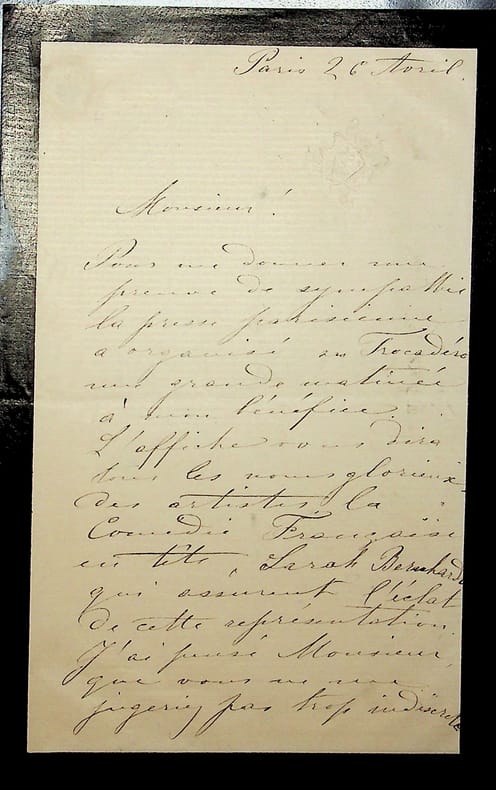 Paris 26 Avril.
Monsieur!
Pour me donner une
preuve de sympathie
la presse parisienne
a organisé au Trocadéro
une grande matinée
à mon bénéfice.
L'affiche vous dira
tous les noms glorieux
des artistes, la
Comédie Française
en tête, Sarah Bernhardt
qui assurent l'éclat
de cette représentation.
J'ai pensé Monsieur,
que vous ne me
jugeriez pas trop indiscrète